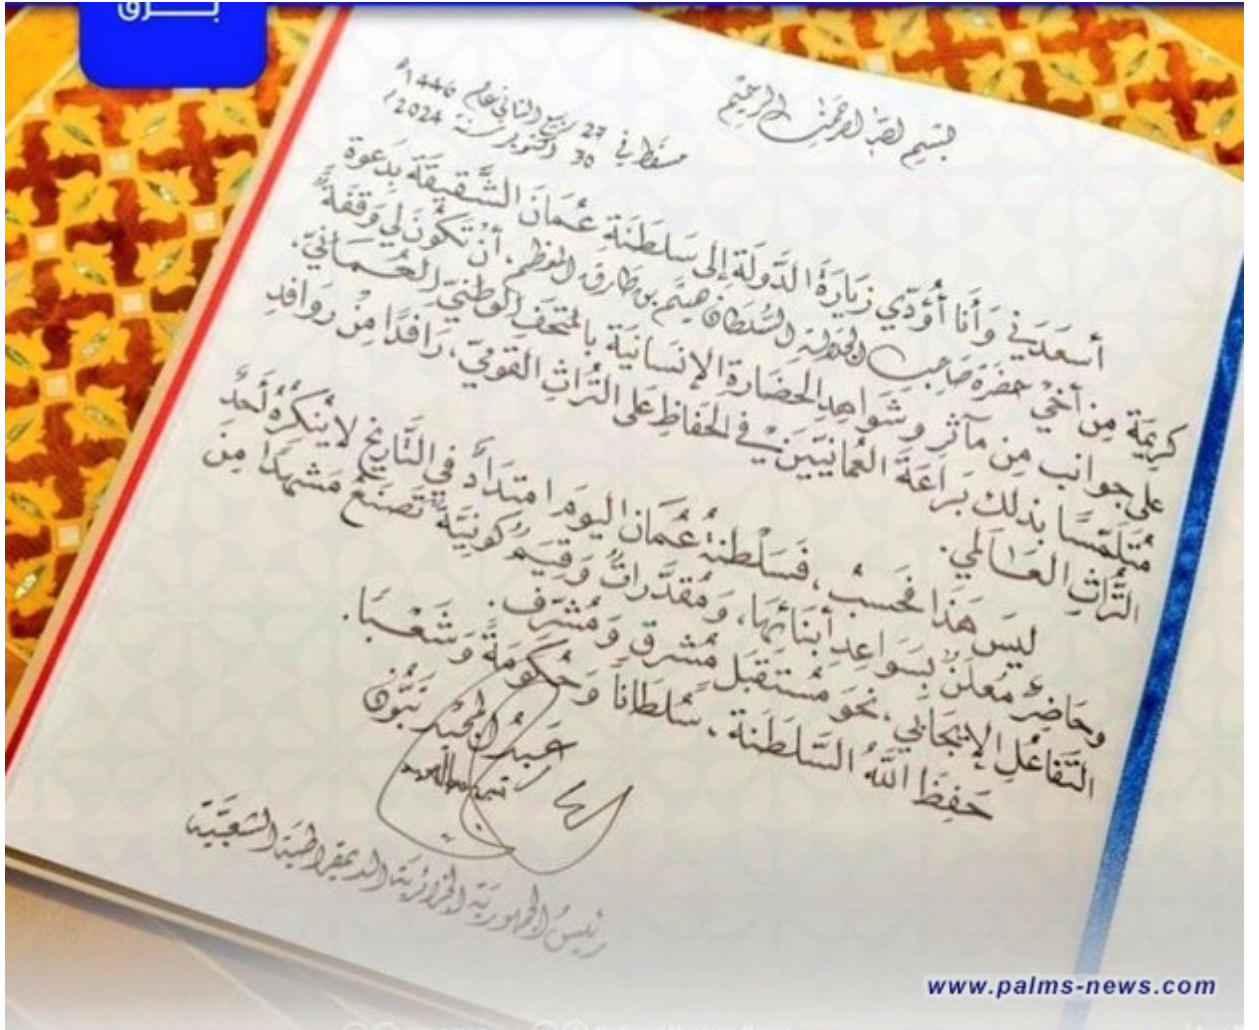 بـــرق
بسم الله الرحمن الرحيم
مسقط في 27 ربيع الثاني عام 1446هـ
30 أكتوبر سنة 2024م
أسعدَني وَأَنا أُؤَدّي زيَارَةَ الدَّولَة إلى سَلطَنَةِ عُمَانَ الشَّقِيقَة بِدَعوَة
كَرِيمَة مِن أخي حَضرَة صَاحِب الجلالةِ السُّلطان هيثم بن طارق المعظم، أنْ تَكُونَ لي وَقفَةٌ
على جوانب مِن مآثرِ وشَواهدِ الحضَارةِ الإنسَانيَة بالمتحَفِ الوطنيّ العُمَانيّ،
مُتلَمّسًا بذلك بَراعَةَ العُمانيّينَ في الحفاظِ على التُّراثِ القوميّ، رَافدًا مِنْ رَوَافدِ
التُّراثِ العَالمي.
ليسَ هَذَا فحسبُ، فَسَلْطنةُ عُمَان اليومَ امتِدَادٌ في التَّاريخ لا يُنكرُهُ أَحَدٌ
وحَاضِرٌ مُعلَنٌ بِسَواعِدِ أبنَائهَا، ومُقدَّراتٌ وَقِيَمٌ كَونِيَّةٌ تَصنَعُ مَشهَدًا مِنَ
التَّفاعُلِ الإيجَابي، نحوَ مُستَقبَلٍ مُشرقٍ وَمُشرّف.
حَفِظَ اللهُ السَّلطَنة، سُلطَاناً وَحُكومَةً وَشَعْبًا.
عَبدُ المجيد تبُّون
رئيسُ الجمهوريَة الجزائريَة الديمقراطيَة الشعبيَّة
www.palms-news.com